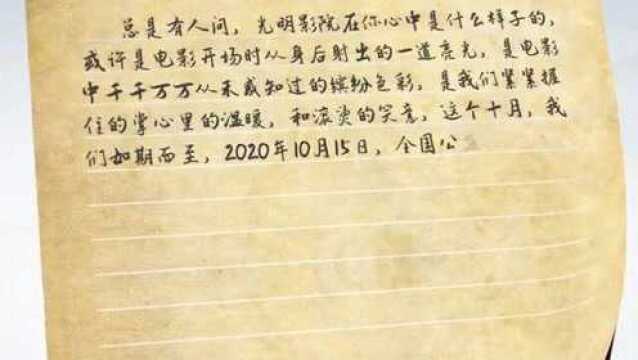 总是有人问，光明影院在你心中是什么样子的，
或许是电影开场时从身后射出的一道亮光，是电影
中千千万万从未感知过的缤纷色彩，是我们紧紧握
住的掌心里的温暖，和滚烫的笑意，这个十月，我
们如期而至，2020年10月15日，全国公